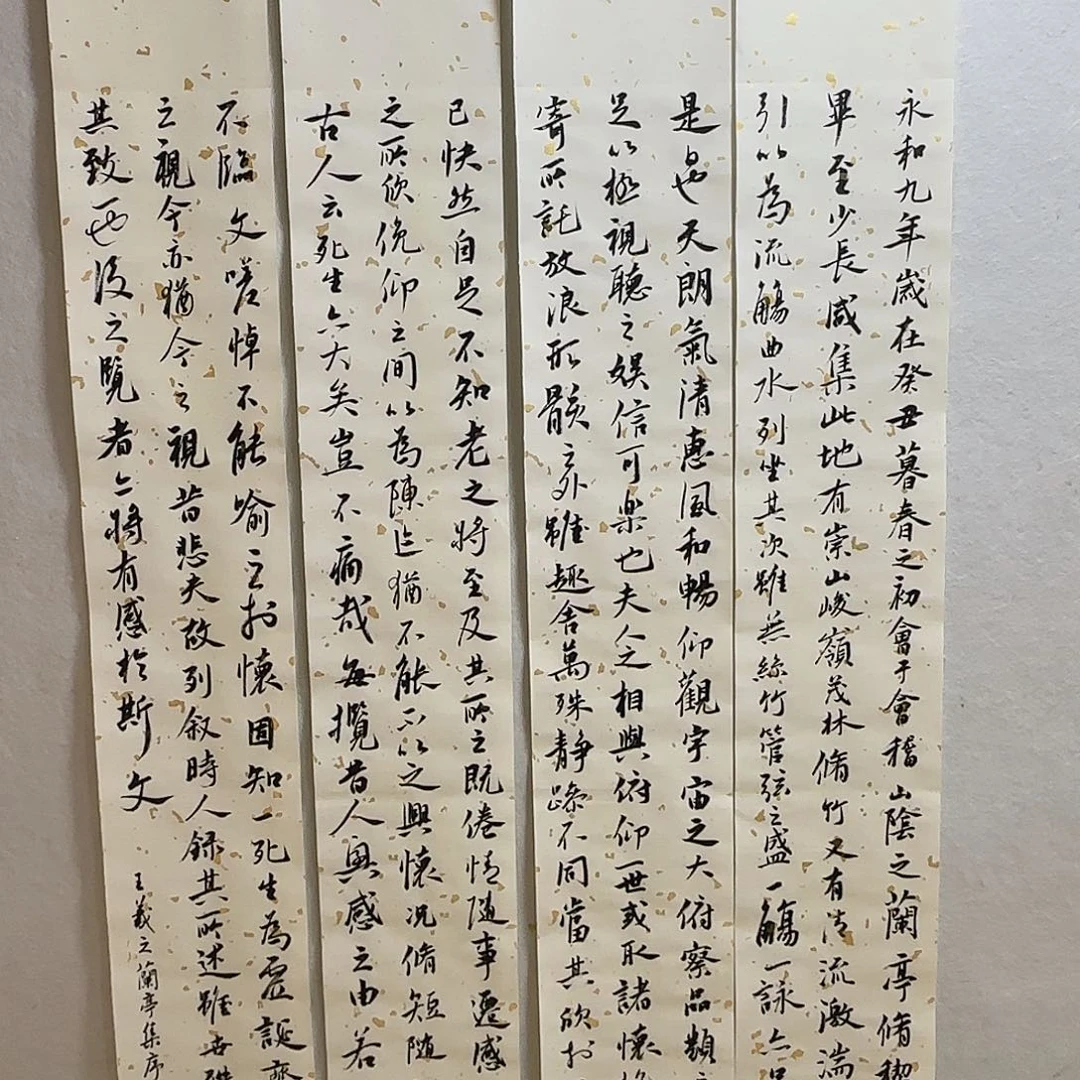 永和九年歲在癸丑暮春之初會于會稽山陰之蘭亭脩禊
畢至少長咸集此地有崇山峻嶺茂林脩竹又有清流激湍
引以為流觴曲水列坐其次雖無絲竹管弦之盛一觴一詠亦足
是日也天朗氣清惠風和暢仰觀宇宙之大俯察品類
足以極視聽之娛信可樂也夫人之相與俯仰一世或取諸懷
寄所託放浪形骸之外雖趣舍萬殊靜躁不同當其欣於
己快然自足不知老之將至及其所之既倦情随事遷感
之所欣俛仰之間以為陳迹猶不能不以之興懷況脩短随
古人云死生亦大矣豈不痛哉每攬昔人興感之由若
不臨文嗟悼不能喻之於懷固知一死生為虛誕齊
之視今亦猶今之視昔悲夫故列叙時人録其所述雖世殊
其致一也後之覽者亦將有感於斯文
王羲之蘭亭集序